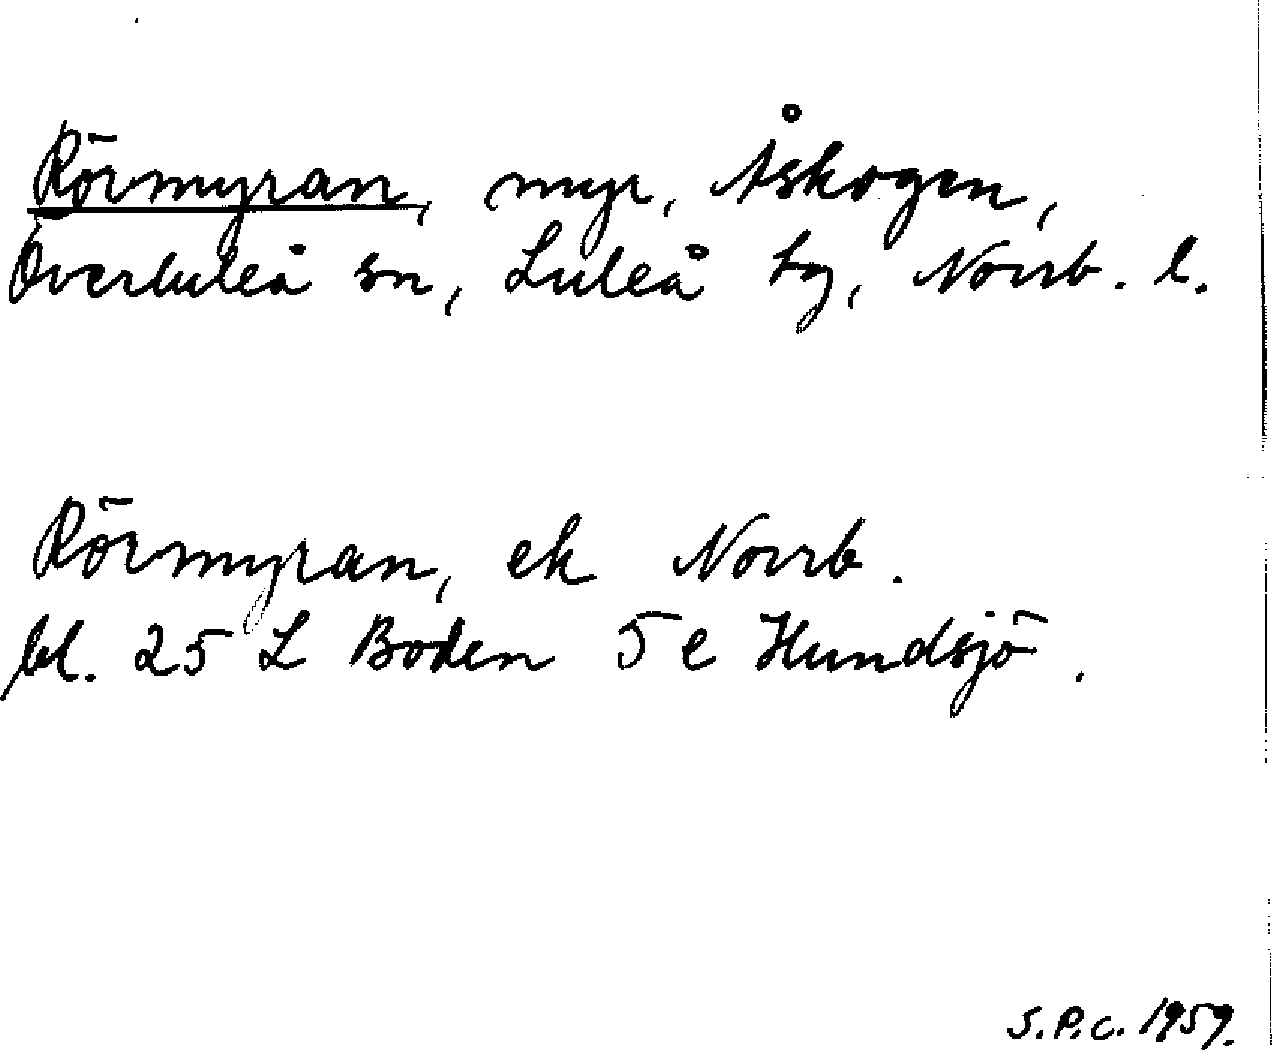 Rörmyran, myr, Åskogen,
Överluleå sn, Luleå tg, Norrb. l.
Rörmyran, ek Norrb.
bl. 25 L Boden 5 e Hundsjö.
S.P.C. 1959.